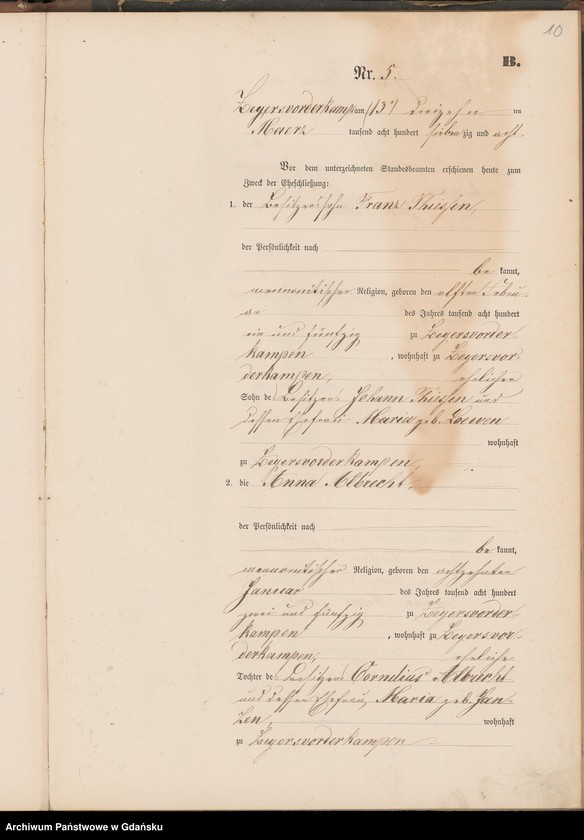 10
B.
Nr. 5.
Zeyersvorderkampen am (13) dreizehn ten
Maerz tausend acht hundert siebenzig und acht
Vor dem unterzeichneten Standesbeamten erschienen heute zum
Zweck der Eheschließung:
1. der Besitzerssohn Franz Thiessen,
der Persönlichkeit nach
be kannt,
mennonitischer Religion, geboren den elften Febru-
ar des Jahres tausend acht hundert
ein und fünfzig zu Zeyersvorder-
kampen , wohnhaft zu Zeyersvor-
derkampen, ehelicher
Sohn des Besitzers Johann Thiessen und
dessen Ehefrau Maria geb. Loewen
wohnhaft
zu Zeyersvorderkampen,
2. die Anna Albrecht,
der Persönlichkeit nach
be kannt,
mennonitischer Religion, geboren den achtzehnten
Januar des Jahres tausend acht hundert
zwei und fünfzig zu Zeyersvorder-
kampen , wohnhaft zu Zeyersvor-
derkampen, eheliche
Tochter des Besitzers Cornelius Albrecht
und dessen Ehefrau, Maria geb. Jan-
zen, wohnhaft
zu Zeyersvorderkampen
Archiwum Państwowe w Gdańsku